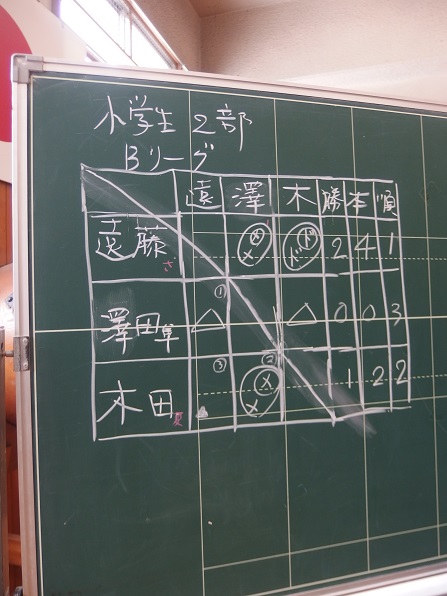 小学生 2部
Bリーグ
遠 澤 木 勝 本 順
遠藤さ メメ ドド 2 4 1
澤田草 ① △ △ 0 0 3
木田夏 ③ メメ ② 1 2 2